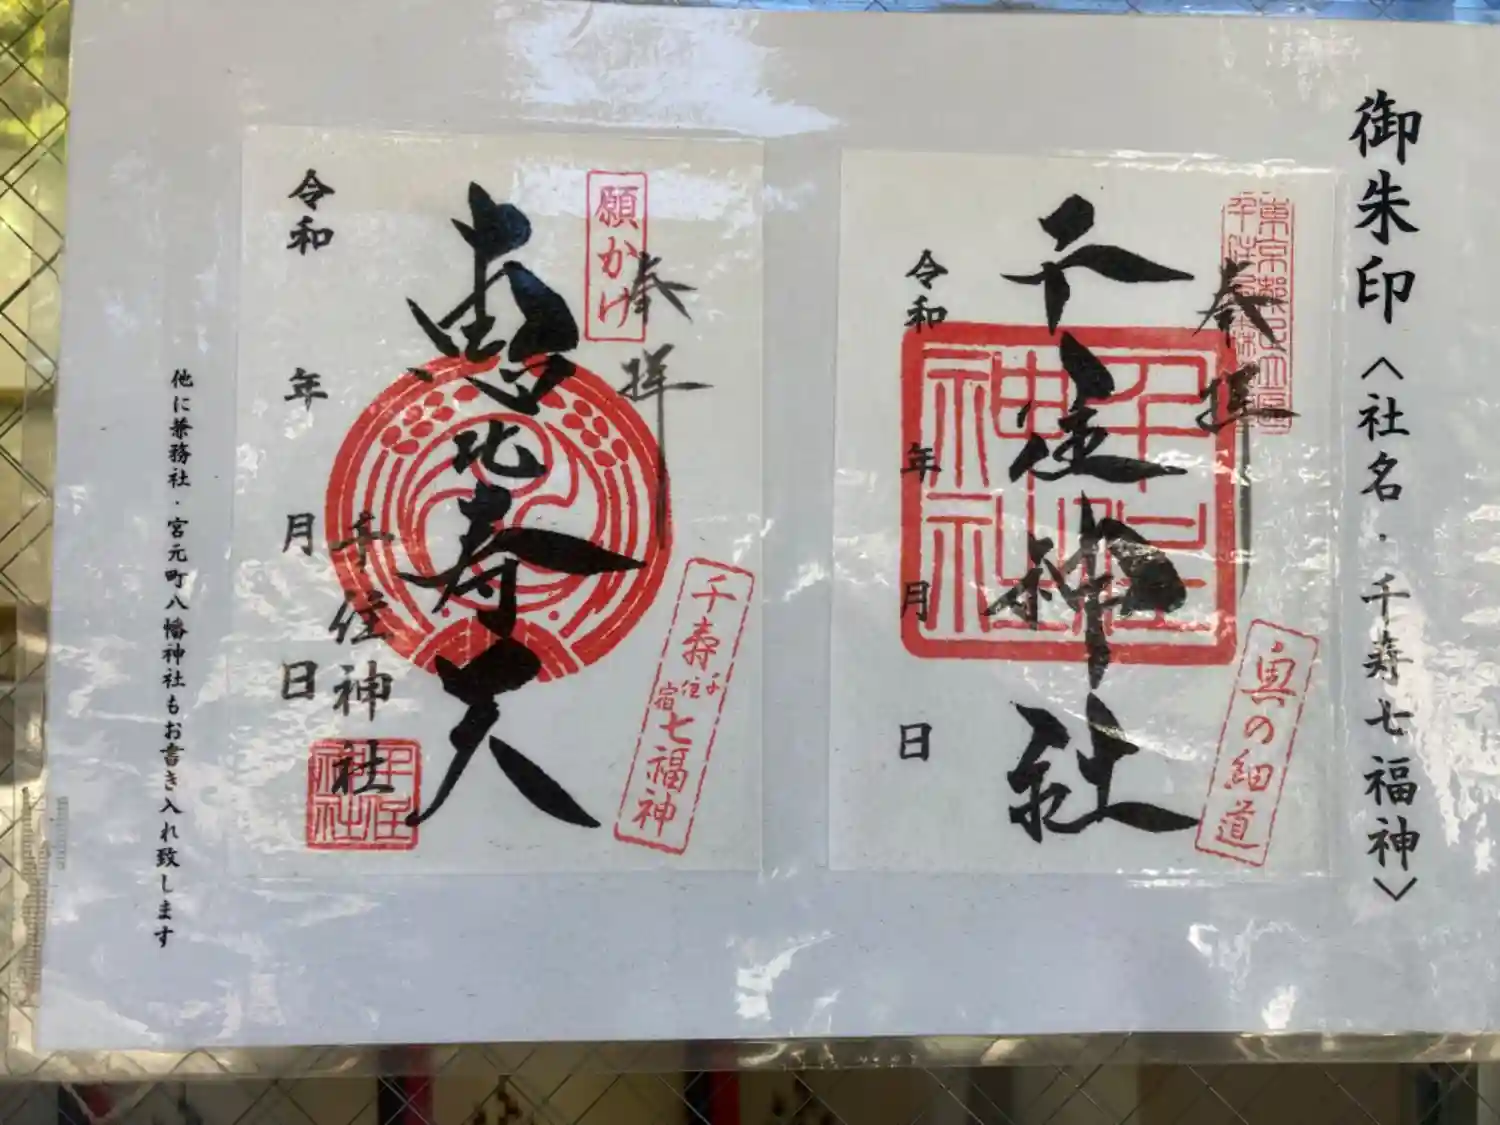 御朱印〈社名・千寿七福神〉
奉拝
千住神社
令和 年 月 日
千住神社
奥の細道
願かけ
奉拝
恵比寿天
令和 年 月 日
千住神社
千住神社
千寿七福神
千住宿
他に兼務社・宮元町八幡神社もお書き入れ致します